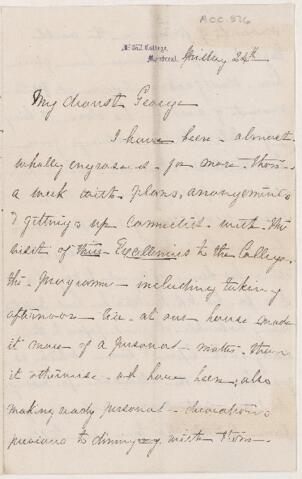 ACC. 526
McGill College,
Montreal.
Friday 24th
My dearest George
I have been almost
wholly engrossed for more than
a week with plans, arrangements
& getting up connected with the
visit of their Excellencies to the College,
the programme including taking
afternoon tea at our house made
it more of a personal matter than
it otherwise would have been, also
making ready personal decorations
previous to dining with them